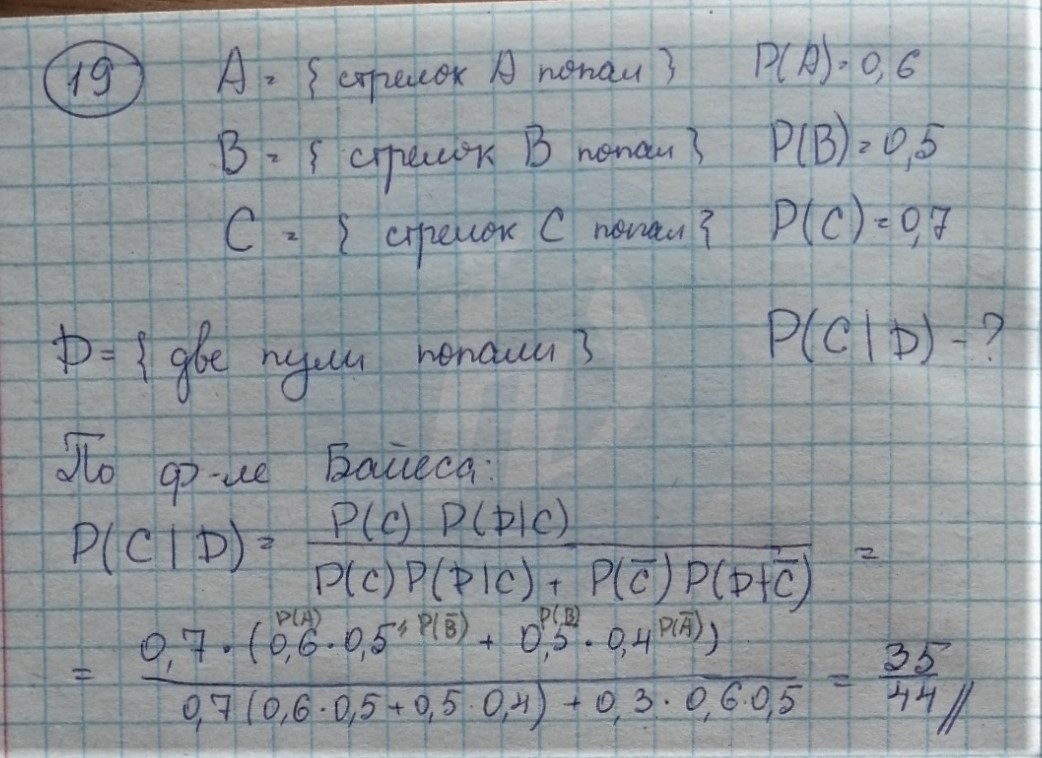 19 A = { стрелок A попал } P(A) = 0,6
B = { стрелок B попал } P(B) = 0,5
C = { стрелок C попал } P(C) = 0,7
D = { две пули попали } P(C|D) - ?
По ф-ле Байеса:
P(C|D) = P(C) P(D|C) / P(C)P(D|C) + P(C̅)P(D|C̅) =
P(A) P(B̅) P(B) P(A̅)
= 0,7 · (0,6 · 0,5 + 0,5 · 0,4) / 0,7(0,6 · 0,5 + 0,5 · 0,4) + 0,3 · 0,6 · 0,5 = 35/44 //